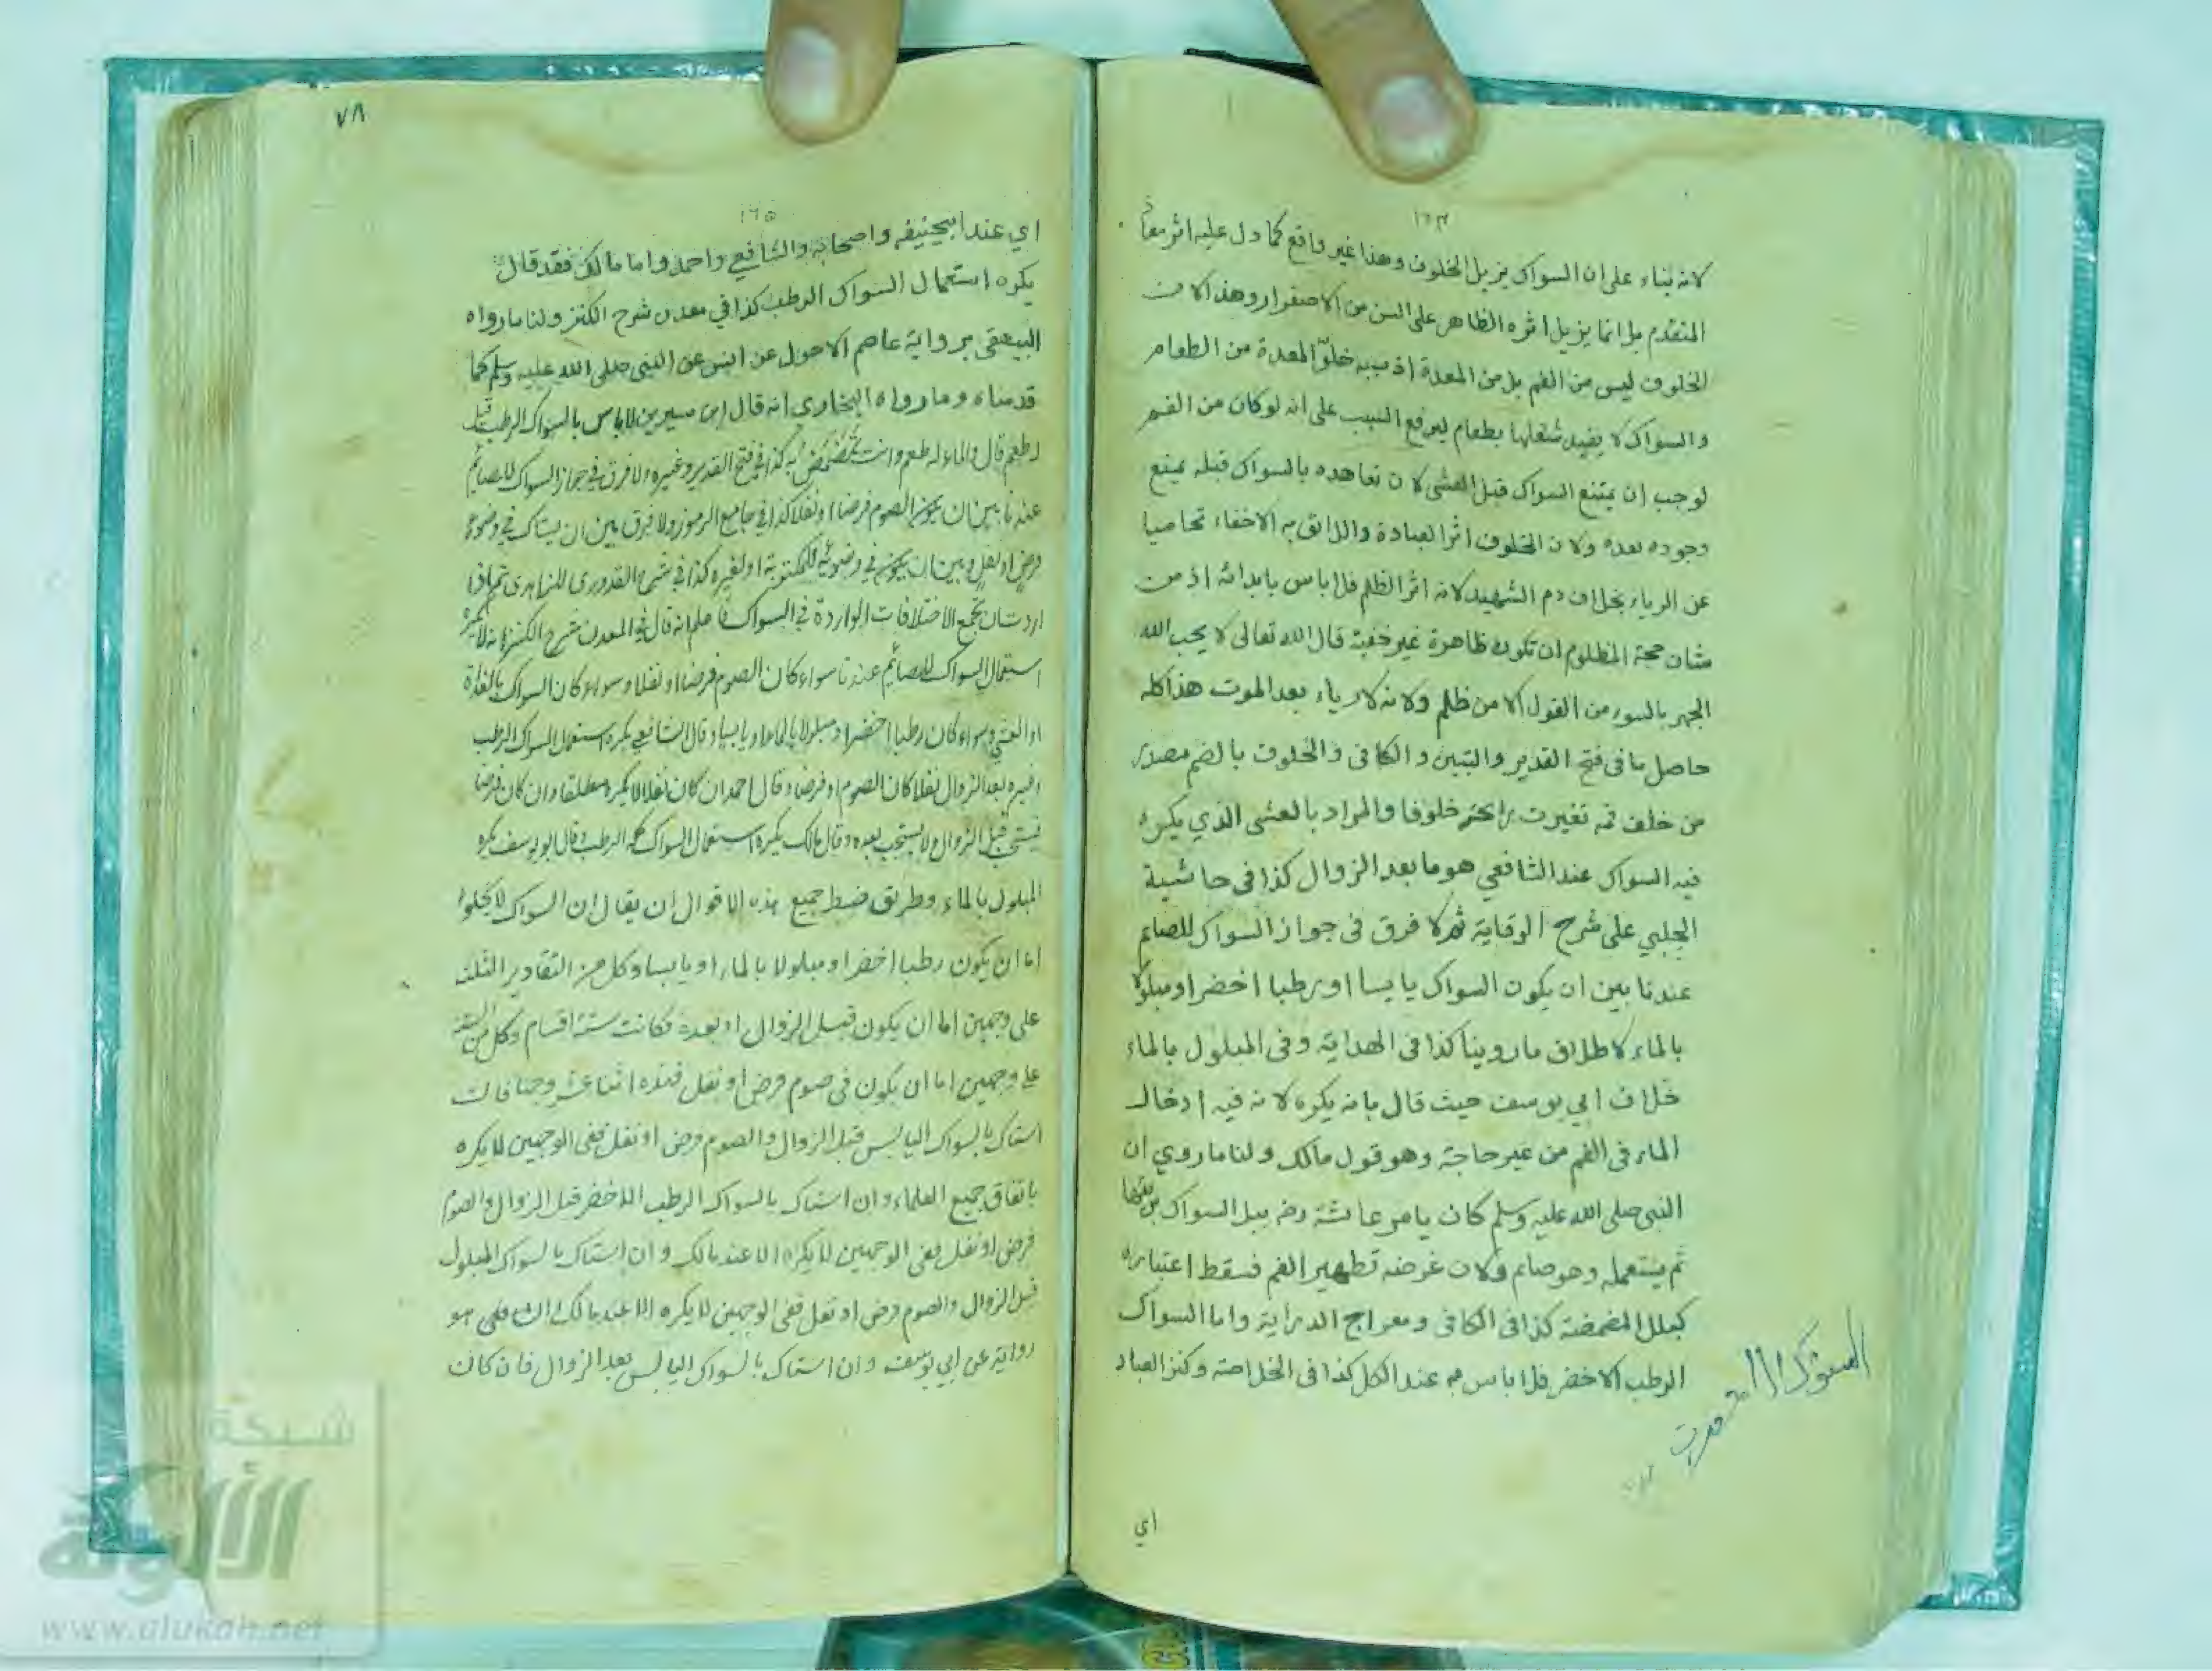 لانه بناء على ان السواك يزيل الخلوف وهذا غير واقع كما دل عليه اثر معاذ
المتقدم بل انما يزيل اثره الظاهر على السن من الاصفرار وهذا لان
الخلوف ليس من الفم بل من المعدة اذ سببه خلوّ المعدة من الطعام
والسواك لا يفيد شغلها بطعام ليرفع السبب على انه لو كان من الفم
لوجب ان يمتنع السواك قبل العشي لان تعاهده بالسواك قبله يمنع
وجوده بعده ولان الخلوف اثر العبادة واللائق به الاخفاء تحاصيا
عن الرياء بخلاف دم الشهيد لانه اثر الظلم فلا باس بابدائه اذ من
شان حجة المظلوم ان تكون ظاهرة غير خفية قال الله تعالى لا يحب الله
الجهر بالسوء من القول الا من ظلم ولانه لا رياء بعد الموت هذا كله
حاصل ما فى فتح القدير والتبين والكافى والخلوف بالضم مصدر
من خلف فمه تغيرت رائحته خلوفا والمراد بالعشى الذي يكره
فيه السواك عند الشافعي هو ما بعد الزوال كذا فى حاشية
الجلبي على شرح الوقاية ثم لا فرق فى جواز السواك للصائم
عندنا بين ان يكون السواك يابسا او رطبا اخضر او مبلولا
بالماء لاطلاق ما روينا كذا فى الهداية وفى المبلول بالماء
خلاف ابي يوسف حيث قال بانه يكره لانه فيه ادخال
الماء فى الفم من غير حاجة وهو قول مالك ولنا ما روي ان
النبى صلى الله عليه وسلم كان يامر عائشة رضه ببل السواك بريقها
ثم يستعمله وهو صائم ولان غرضه تطهير الفم فسقط اعتباره
كبلل المضمضة كذا فى الكافى ومعراج الدراية واما السواك
الرطب الاخضر فلا باس به عند الكل كذا فى الخلاصة وكنز العباد
اي
٧٨
١٦٥
اي عند ابيحنيفه واصحابه والشافعي واحمد واما مالك فقد قال
يكره استعمال السواك الرطب كذا في معدن شرح الكنز ولنا ما رواه
البيهقى برواية عاصم الاحول عن انس عن النبى صلى الله عليه وسلم كما
قدمناه وما رواه البخارى انه قال ابن سيرين لا باس بالسواك الرطب قيل
له طعم قال والماء له طعم وانت تمضمض به كذا في فتح القدير وغيره ولا فرق في جواز السواك للصائم
عندنا بين ان يكون الصوم فرضا او نفلا كذا في جامع الرموز ولا فرق بين ان يستاك في وضوء
فرض او نفل وبين ان يكون في وضوئه للمكتوبة او لغيره كذا في شرح القدورى للزاهدى ثم اذا
اردت ان تجمع الاختلافات الواردة في السواك فاعلم انه قال في المعدن شرح الكنز انه لا يكره
استعمال السواك للصائم عندنا سواء كان الصوم فرضا او نفلا وسواء كان السواك بالغداة
او العشي وسواء كان رطبا اخضر او مبلولا بالماء او يابسا وقال الشافعي يكره استعمال السواك الرطب
وغيره بعد الزوال نفلا كان الصوم او فرضا وقال احمد ان كان نفلا لا يكره مطلقا وان كان فرضا
قبل الزوال ولا يستحب بعده وقال مالك يكره استعمال السواك الرطب وقال ابو يوسف يكره
المبلول بالماء وطريق ضبط جميع هذه الاقوال ان يقال ان السواك لا يخلوا
اما ان يكون رطبا اخضر او مبلولا بالماء او يابسا وكل من التقادير الثلث
على وجهين اما ان يكون قبل الزوال او بعده فكانت ستة اقسام وكل من الستة
على وجهين اما ان يكون فى صوم فرض او نفل فهذه اثنا عشر وجها فان
استاك بالسواك اليابس قبل الزوال والصوم فرض او نفل ففى الوجهين لا يكره
باتفاق جميع العلماء وان استاك بالسواك الرطب الاخضر قبل الزوال والصوم
فرض او نفل ففى الوجهين لا يكره الا عند مالك وان استاك بالسواك المبلول
قبل الزوال والصوم فرض او نفل ففى الوجهين لا يكره الا عند مالك هو
رواية عن ابي يوسف وان استاك بالسواك اليابس بعد الزوال فان كان
شبكة
الألوكة
www.alukah.net